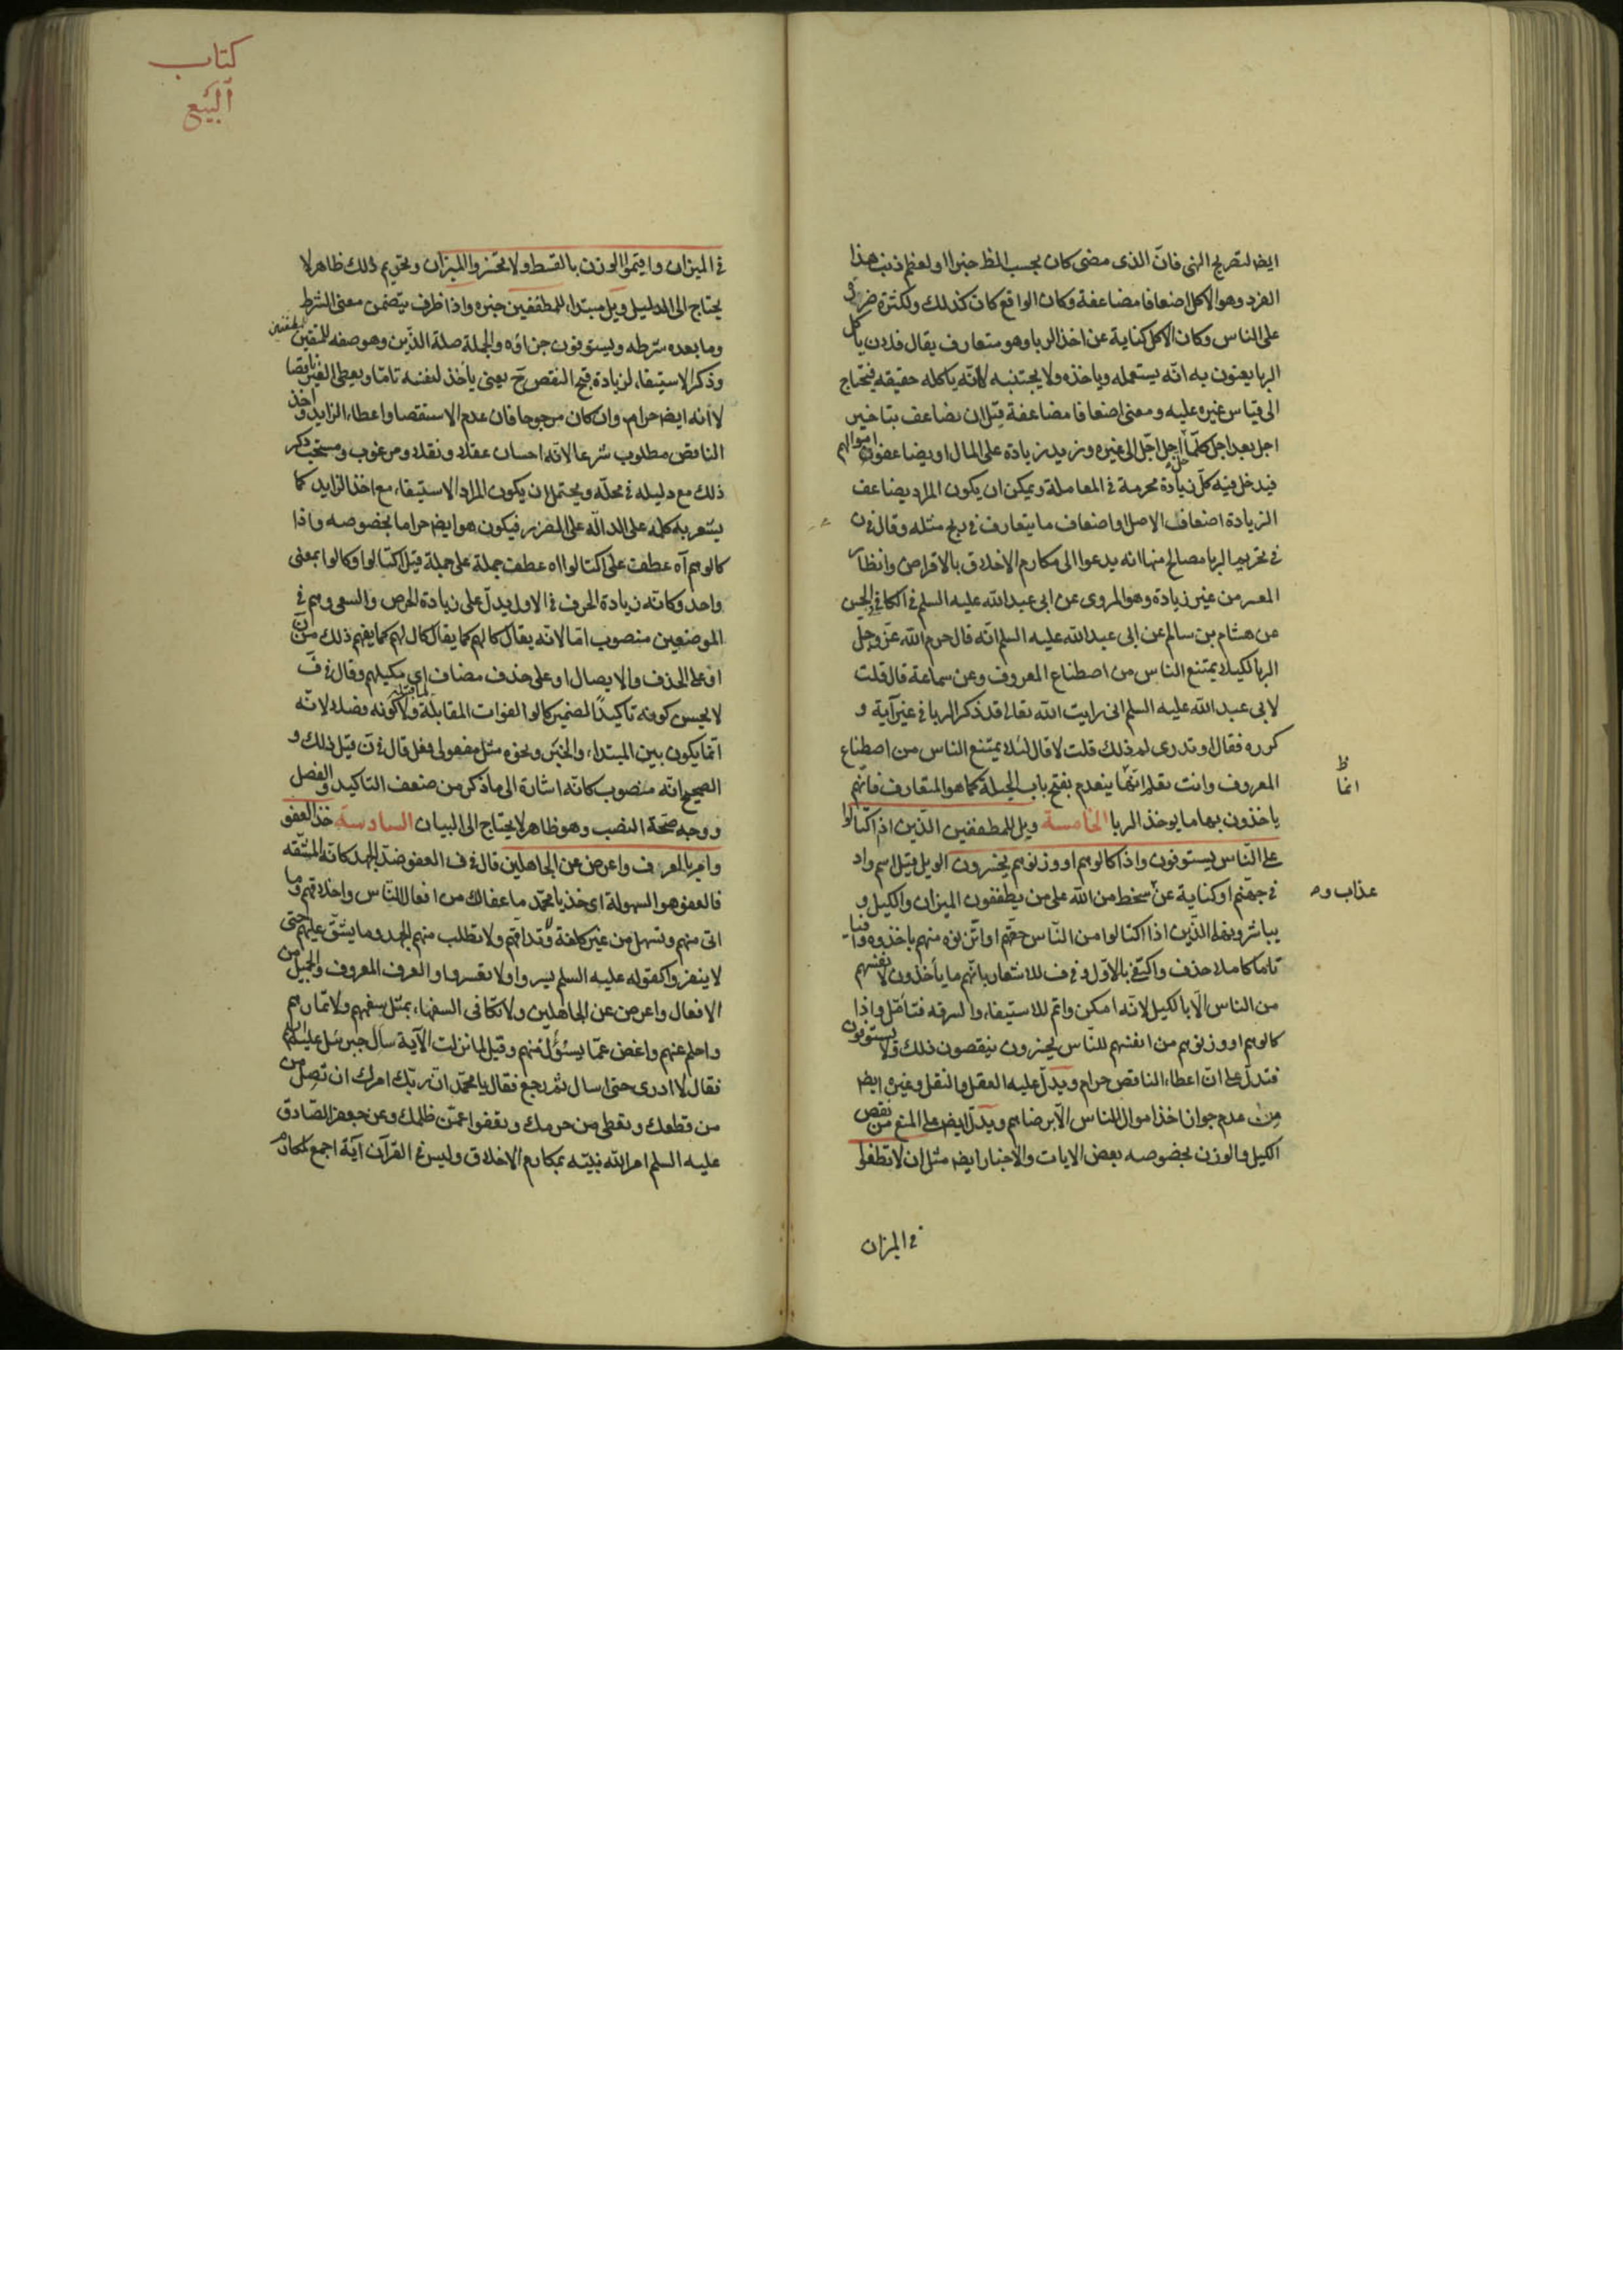 ايضا لتصريح النهى فانّ الذى مضى كان بحسب الظ خبرا او لعظم ذنب هذا
الفرد وهو الاكل اضعافا مضاعفة وكان الواقع كان كذلك ولكثرة ضرره
على الناس وكان الاكل كناية عن اخذ الربا وهو متعارف يقال فلان يأكل
الربا يعنون به انّه يستعمله وياخذه ولا يجتنبه لا انّه ياكله حقيقه فيحتاج
الى قياس غيره عليه ومعنى اضعافا مضاعفة قيل ان يضاعف بتاخير
اجل بعد اجل كلمّا حل اجل اجّل الى غيره وزيد زيادة على المال او يضاعفون اموالهم
فيدخل فيه كلّ زيادة محرمة فى المعاملة ويمكن ان يكون المراد يضاعف
الزيادة اضعاف الاصل او اضعاف ما يتعارف فى ربح مثله وقال فى ن
فى تحريم الربا مصالح منها انه يدعوا الى مكارم الاخلاق بالاقراض وانظار
المعسر من غير زيادة وهو المروى عن ابى عبد الله عليه السلم فى الكافى الحسن
عن هشام بن سالم عن ابى عبد الله عليه السلم انّه قال حرم الله عزّ وجل
الربا لكيلا يمتنع الناس من اصطناع المعروف وعن سماعة قال قلت
لابى عبد الله عليه السلم انى رايت الله تعالى قد ذكر الربا فى غير آية و
كرره فقال او تدرى لم ذلك قلت لا قال لئلا يمتنع الناس من اصطناع
المعروف وانت تعلم انّهما ينعدم بفتح باب الحيلة كما هو المتعارف فانّهم
ياخذون بها ما يوخذ الربا الخامسة ويل للمطففين الذين اذ اكتالوا
على النّاس يستوفون واذا كالوهم او وزنوهم يخسرون الويل قيل اسم واد
فى جهنم او كناية عن سخط من الله على من يطففون الميزان والكيل و
يباشرونه الذين اذا اكتالوا من النّاس حقهم او اتّزنوه منهم ياخذوه وافيا
تامّا كاملا حذف واكتفى بالاوّل وفى ف للاشعار بانّهم ما يأخذون لانفسهم
من الناس الّا بالكيل لانّه امكن واتم للاستيفاء والسرقه فتأمّل واذا
كالوهم او وزنوهم من انفسهم للنّاس يخسرون ينقصون ذلك ولا يستوفون
فتدلّ على انّ اعطاء الناقص حرام ويدلّ عليه العقل والنقل وغيره ايضا
من عدم جواز اخذ اموال الناس الّا برضاهم ويدلّ ايضا على المنع من نقص
الكيل والوزن بخصوصه بعض الايات والاخبار ايضا مثل ان لا تطغوا
فى الميزان
ظ
انما
عذاب و
كتاب
البيع
فى الميزان واقيموا الوزن بالقسط ولا تخسروا الميزان وتحريم ذلك ظاهر لا
يحتاج الى الدليل ويل مبتداء للمطففين خبره واذا ظرف يتضمن معنى الشرط
وما بعده شرطه ويستوفون جزاؤه والجملة صلة الذين وهو صفه للمتقين
للمطففين
وذكر الاستيفاء لزيادة قبح النقص ح يعنى يأخذ لنفسه تامّا ويعطى الغير ناقصا
لا انه ايضا حرام وان كان مرجوحا فان عدم الاستقصا واعطاء الزايد و اخذ
الناقص مطلوب شرعا لانّه احسان عقلا ونقلا ومرغوب ومستحب ذكر
ذلك مع دليله فى محلّه ويحتمل ان يكون المراد الاستيفاء مع اخذ الزايد كما
يشعر به كلمه على الدالّه على الضرر فيكون هو ايضا حراما بخصوصه واذا
كالوهم آه عطف على اكتالوا اه عطف جملة على جملة قيل اكتالوا وكالوا بمعنى
واحد وكانّه زيادة الحرف فى الاول يدلّ على زيادة الحرص والسعى وهم فى
الموضعين منصوب امّا لانه يقال كالهم كما يقال كال لهم كما يفهم ذلك من ن
او على الحذف والايصال او على حذف مضاف اى مكيلهم وقال فى ف
لا يحسن كونه تاكيدًا لضمير كالوا لفوات المقابلة ولا كونه فصلا لانّه
انّما يكون بين المبتداء والخبر ونحوه مثل مفعولى فعل قال فى ن قيل ذلك و
الصحيح انّه منصوب كانّه اشارة الى ما ذكر من ضعف التاكيد والفصل
ووجه صحّة النصب وهو ظاهر لا يحتاج الى البيان السادسة خذ العفو
وامر بالمعرف واعرض عن الجاهلين قال فى ف العفو ضدّ الجهد كانّه المشقه
فالعفو هو السهولة اى خذ يا محمّد ما عفا لك من افعال النّاس واخلاقهم وما
اتى منهم وتسهل من غير كلفة ولا تداقّهم ولا تطلب منهم الجهد وما يشقّ عليهم حتى
لا ينفروا كقوله عليه السلم يسروا ولا تعسروا والعرف المعروف والجميل من
الافعال واعرض عن الجاهلين ولا تكافى السفهاء بمثل سفههم ولا تمارهم
واحلم عنهم واغض عمّا يسئولمنهم وقيل لما نزلت الآية سأل جبرئيل عليه السلام
فقال لا ادرى حتى اسال ثمّ رجع فقال يا محمّد انّ ربّك امرك ان تصل من
من قطعك وتعطى من حرمك وتعفوا عمّن ظلمك وعن جعفر الصّادق
عليه السلم امر الله نبيّه بمكارم الاخلاق وليس فى القرآن آية اجمع لمكارم